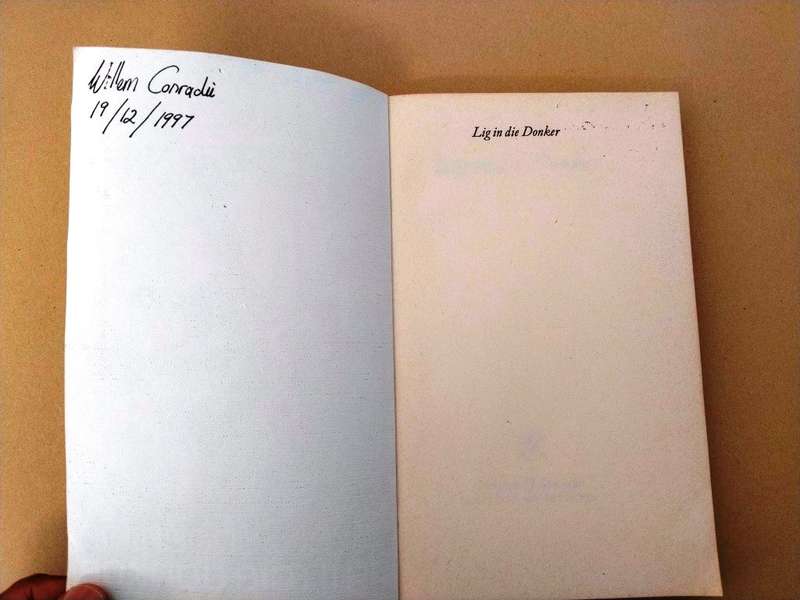 Willem Conradie
19/12/1997
Lig in die Donker